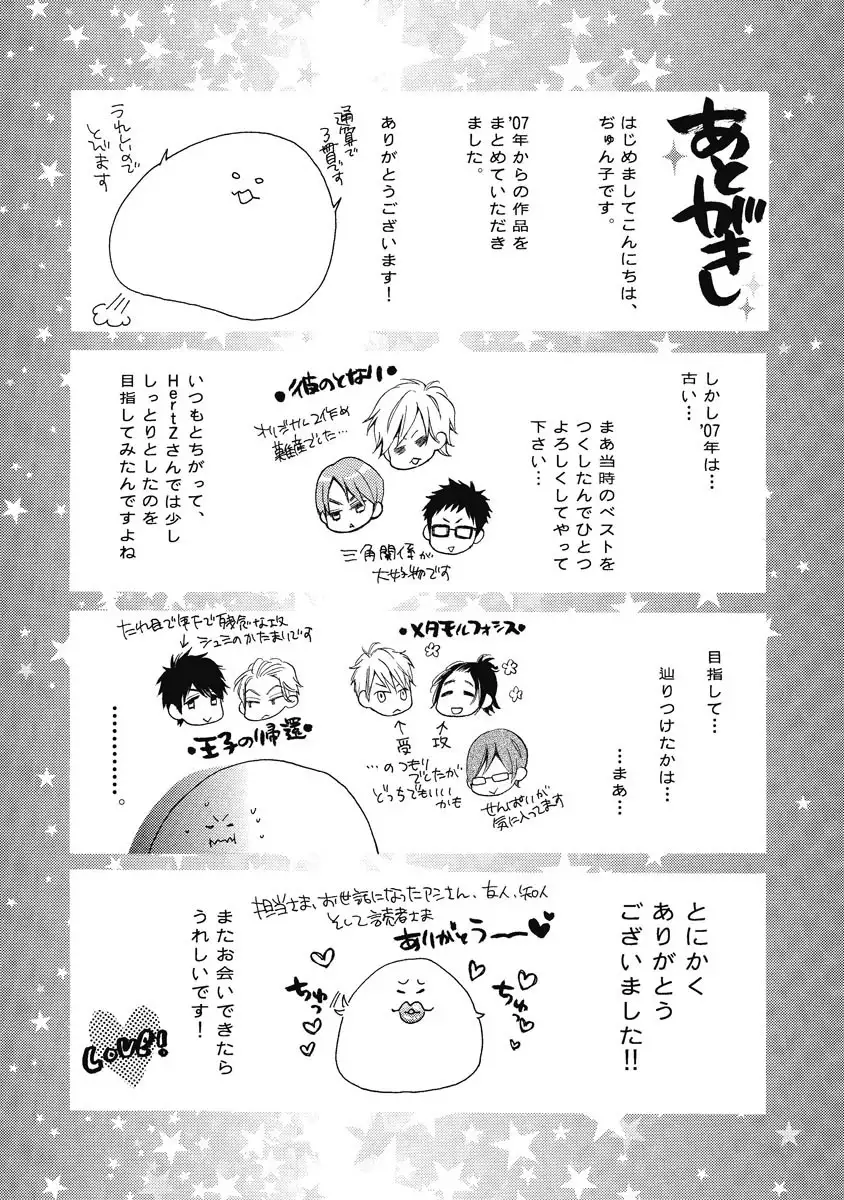 あとがき
はじめましてこんにちは、
ぢゅん子です。
'07年からの作品を
まとめていただき
ました。
ありがとうございます!
通算で
3冊目です
うれしいので
とびます
しかし'07年は…
古い…
まあ当時のベストを
つくしたんでひとつ
よろしくしてやって
下さい…
・彼のとなり・
オリジナル2作め
難産でした…
三角関係が
大好物です
いつもとちがって、
HertZさんでは少し
しっとりとしたのを
目指してみたんですよね
目指して…
辿りつけたかは…
…まあ…
・メタモルフォシス・
↑
受
↑
攻
…のつもり
でしたが
どっちでもいい
かも
せんぱいが
気に入ってます
たれ目で年下で残念な攻
シュミのかたまりです
・王子の帰還・
………。
とにかく
ありがとう
ございました!!
担当さま、お世話になったアシさん、友人、知人
そして読者さま
ありがとうーー♥
ちゅっ
ちゅっ
またお会いできたら
うれしいです!
LOVE!